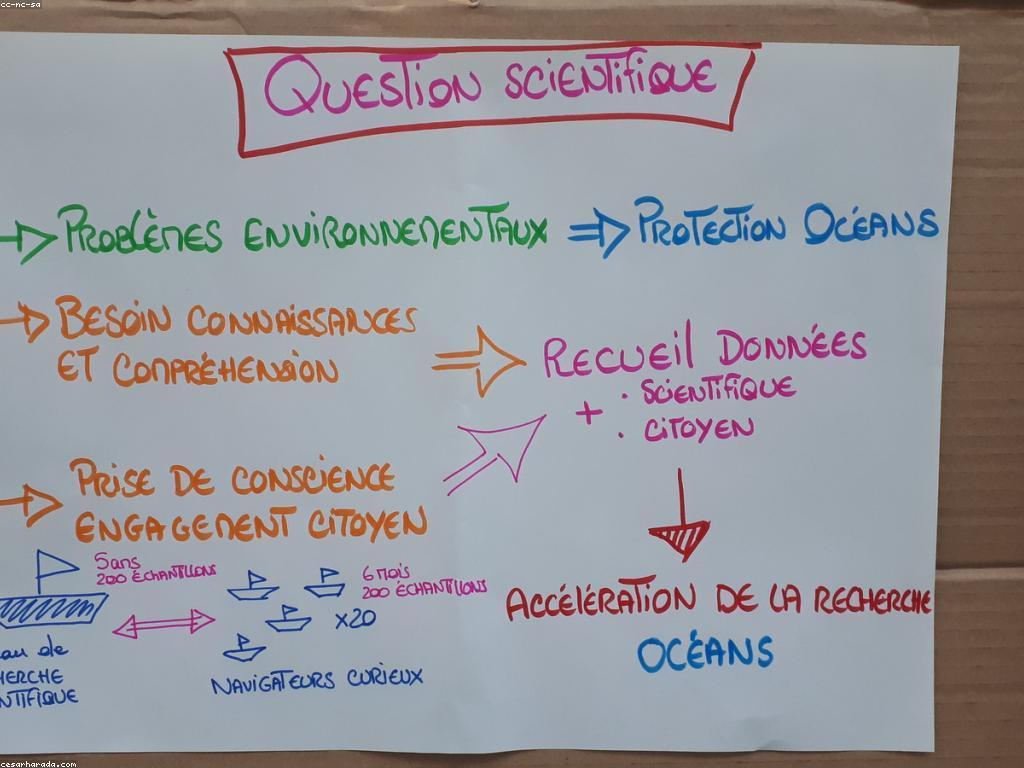 cc-nc-sa
QUESTION SCIENTIFIQUE
PROBLÈMES ENVIRONNEMENTAUX
PROTECTION OCÉANS
BESOIN CONNAISSANCES
ET COMPRÉHENSION
RECUEIL DONNÉES
+ · SCIENTIFIQUE
· CITOYEN
PRISE DE CONSCIENCE
ENGAGEMENT CITOYEN
5 ans
200 ÉCHANTILLONS
6 MOIS
200 ÉCHANTILLONS
x20
NAVIGATEURS CURIEUX
eau de
HERCHE
NTIFIQUE
ACCÉLÉRATION DE LA RECHERCHE
OCÉANS
cesarharada.com